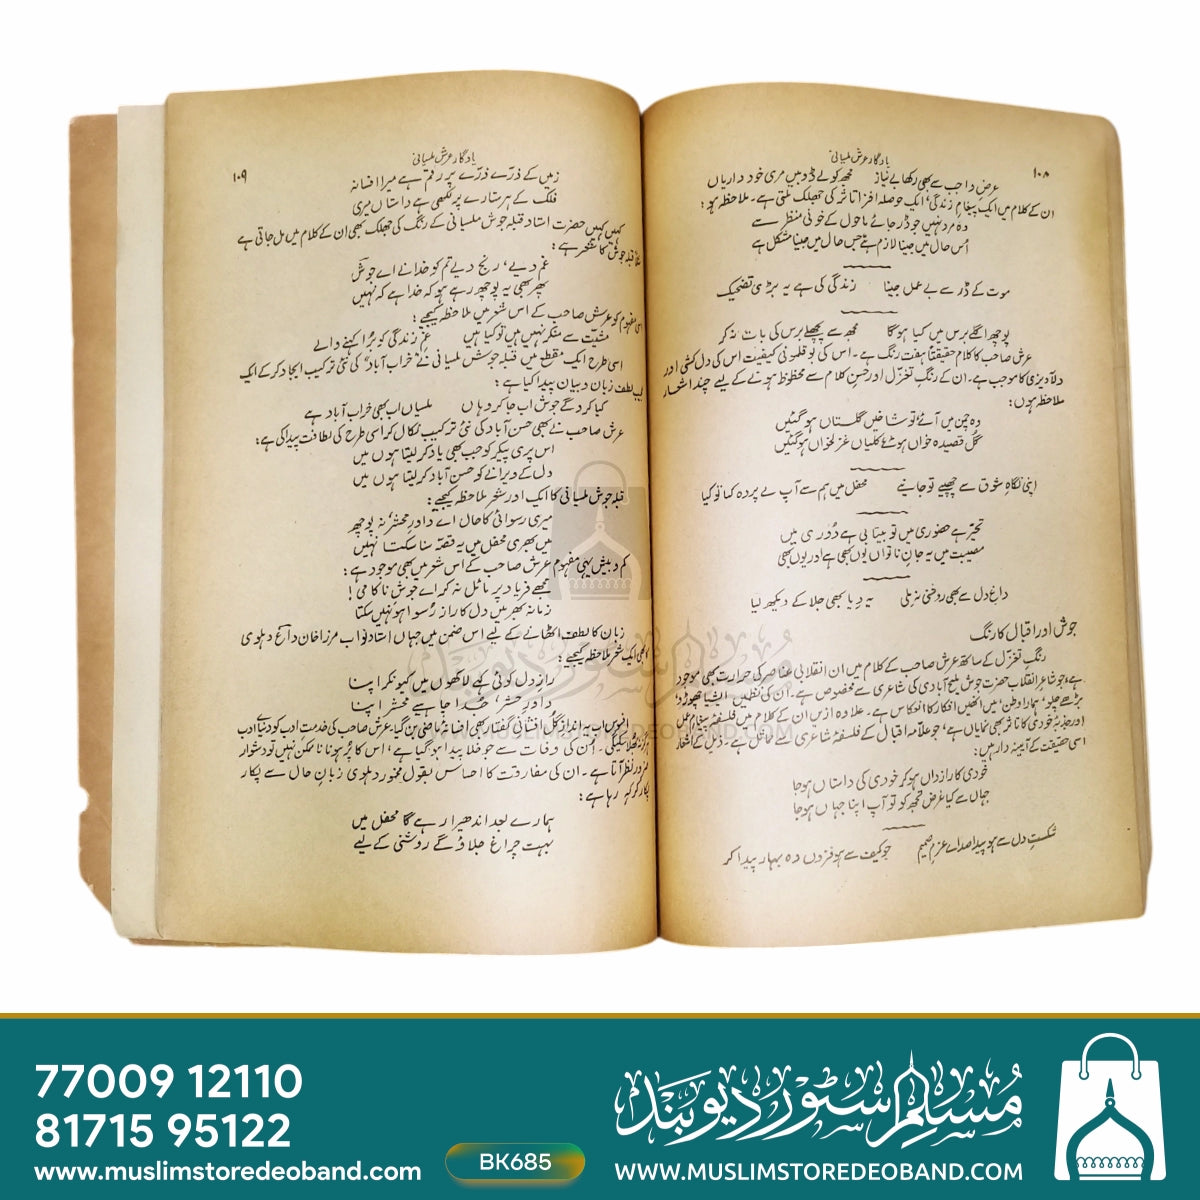 یادگار عرش ملسیانی
۱۰۸
عرض واجب سے بھی رکھا بے نیاز مجھ کو لے ڈوبیں مری خود داریاں
ان کے کلام میں ایک پیغامِ زندگی، ایک حوصلہ افزا تاثر کی جھلک ملتی ہے۔ ملاحظہ ہو:
وہ مرد نہیں جو ڈر جائے ماحول کے خونی منظر سے
اُس حال میں جینا لازم ہے جس حال میں جینا مشکل ہے
موت کے ڈر سے بے عمل جینا زندگی کی ہے یہ بڑی تضحیک
پوچھ اگلے برس میں کیا ہوگا مجھ سے پچھلے برس کی بات نہ کر
عرش صاحب کا کلام حقیقتاً ہفت رنگ ہے۔ اس کی بوقلمونی کیفیت اس کی دل کشی اور
دلآویزی کا موجب ہے۔ ان کے رنگِ تغزّل اور حُسنِ کلام سے محظوظ ہونے کے لیے چند اشعار
ملاحظہ ہوں:
وہ چمن میں آئے تو شاخیں گلستاں ہو گئیں
گُل قصیدہ خواں ہوئے کلیاں غزلخواں ہو گئیں
اپنی نگاہِ شوق سے چھپیے تو جانیے محفل میں ہم سے آپ نے پردہ کیا تو کیا
تحیّر ہے حضوری میں تو بیتابی ہے دُوری میں
مصیبت میں یہ جانِ ناتواں یوں بھی ہے اور یوں بھی
داغِ دل سے بھی روشنی نہ ملی یہ دِیا بھی جلا کے دیکھ لیا
جوش اور اقبال کا رنگ
رنگِ تغزّل کے ساتھ عرش صاحب کے کلام میں ان انقلابی عناصر کی حرارت بھی موجود
ہے، جو شاعرِ انقلاب حضرت جوش ملیح آبادی کی شاعری سے مخصوص ہے۔ ان کی نظمیں 'ایشیا چھوڑ دو'
بڑھے چلو، 'ہمارا وطن' میں انھیں افکار کا انعکاس ہے۔ علاوہ ازیں ان کے کلام میں فلسفۂ پیغامِ عمل
اور جذبۂ خودی کا تاثر بھی نمایاں ہے، جو علامہ اقبال کے فلسفۂ شاعری سے مماثل ہے۔ ذیل کے اشعار
اسی حقیقت کے آئینہ دار ہیں:
خودی کا رازداں ہو کر خودی کی داستاں ہو جا
جہاں سے کیا غرض تجھ کو تو آپ اپنا جہاں ہو جا
شکستِ دل سے ہو پیدا صدائے عزمِ صمیم جو کیف سے ہو فزوں وہ بہار پیدا کر
یادگار عرش ملسیانی
۱۰۹
زمیں کے ذرّے ذرّے پر رقم ہے میرا افسانہ
فلک کے ہر ستارے پر لکھی ہے داستاں میری
کہیں کہیں حضرت استاد قبلہ جوش ملسیانی کے رنگ کی جھلک بھی ان کے کلام میں مل جاتی ہے
قبلہ جوش کا شعر ہے:
غم دیے، رنج دیے تم کو خدا نے اے جوش
پھر بھی یہ پوچھ رہے ہو کہ خدا ہے کہ نہیں
اسی مفہوم کو عرش صاحب کے اس شعر میں ملاحظہ کیجیے:
مشیّت سے منکر نہیں ہیں تو کیا ہیں غمِ زندگی کو بُرا کہنے والے
اسی طرح ایک مقطع میں قبلہ جوش ملسیانی نے "خراب آباد" کی نئی ترکیب ایجاد کر کے ایک
لطف زبان و بیان پیدا کیا ہے:
کیا کرو گے جوش اب جا کر وہاں ملسیاں اب بھی خراب آباد ہے
عرش صاحب نے بھی حسن آباد کی نئی ترکیب نکال کر اسی طرح کی لطافت پیدا کی ہے:
اس پری پیکر کو جب بھی یاد کر لیتا ہوں میں
دل کے ویرانے کو حسن آباد کر لیتا ہوں میں
قبلہ جوش ملسیانی کا ایک اور شعر ملاحظہ کیجیے:
میری رسوائی کا حال اے داورِ محشر نہ پوچھ
میں بھری محفل میں یہ قصّہ سنا سکتا نہیں
کم و بیش یہی مفہوم عرش صاحب کے اس شعر میں بھی موجود ہے:
مجھے فریاد پر مائل نہ کر اے جوش ناکامی!
زمانہ بھر میں دل کا راز رُسوا ہو نہیں سکتا
زبان کا لطف اٹھانے کے لیے اس ضمن میں جہاں استاد نواب مرزا خان داغ دہلوی
کا بھی ایک شعر ملاحظہ کیجیے:
رازِ دل کوئی کہے لاکھوں میں کیونکر اپنا
داورِ حشر، جُدا چاہیے محشر اپنا
افسوس اب یہ اندازِ گل افشانیِ گفتار بھی افسانۂ ماضی بن گیا۔ عرش صاحب کی خدمتِ ادب کو دنیائے ادب
اُن کی وفات سے جو خلا پیدا ہو گیا ہے، اس کا پُر ہونا ناممکن نہیں تو دشوار
ضرور نظر آتا ہے۔ ان کی مفارقت کا احساس بقول مخمور دہلوی زبانِ حال سے پکار
پکار کر کہہ رہا ہے:
ہمارے بعد اندھیرا رہے گا محفل میں
بہت چراغ جلاؤ گے روشنی کے لیے
مسلم سٹور دیوبند
WWW.MUSLIMSTOREDEOBAND.COM
77009 12110
81715 95122
www.muslimstoredeoband.com
BK685
مسلم سٹور دیوبند
WWW.MUSLIMSTOREDEOBAND.COM